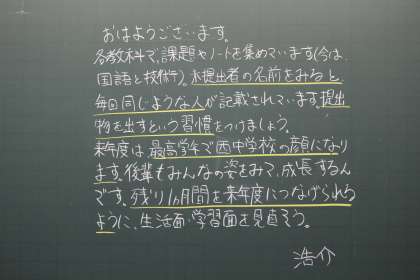 おはようございます。
各教科で、課題やノートを集めています(今は、
国語と技術)。未提出者の名前をみると、
毎回同じような人が記載されています。提出
物を出すという習慣をつけましょう。
来年度は、最高学年で西中学校の顔になり
ます。後輩もみんなの姿をみて、成長するん
です。残り1ヵ月間を来年度につなげられる
ように、生活面・学習面を見直そう。
浩介